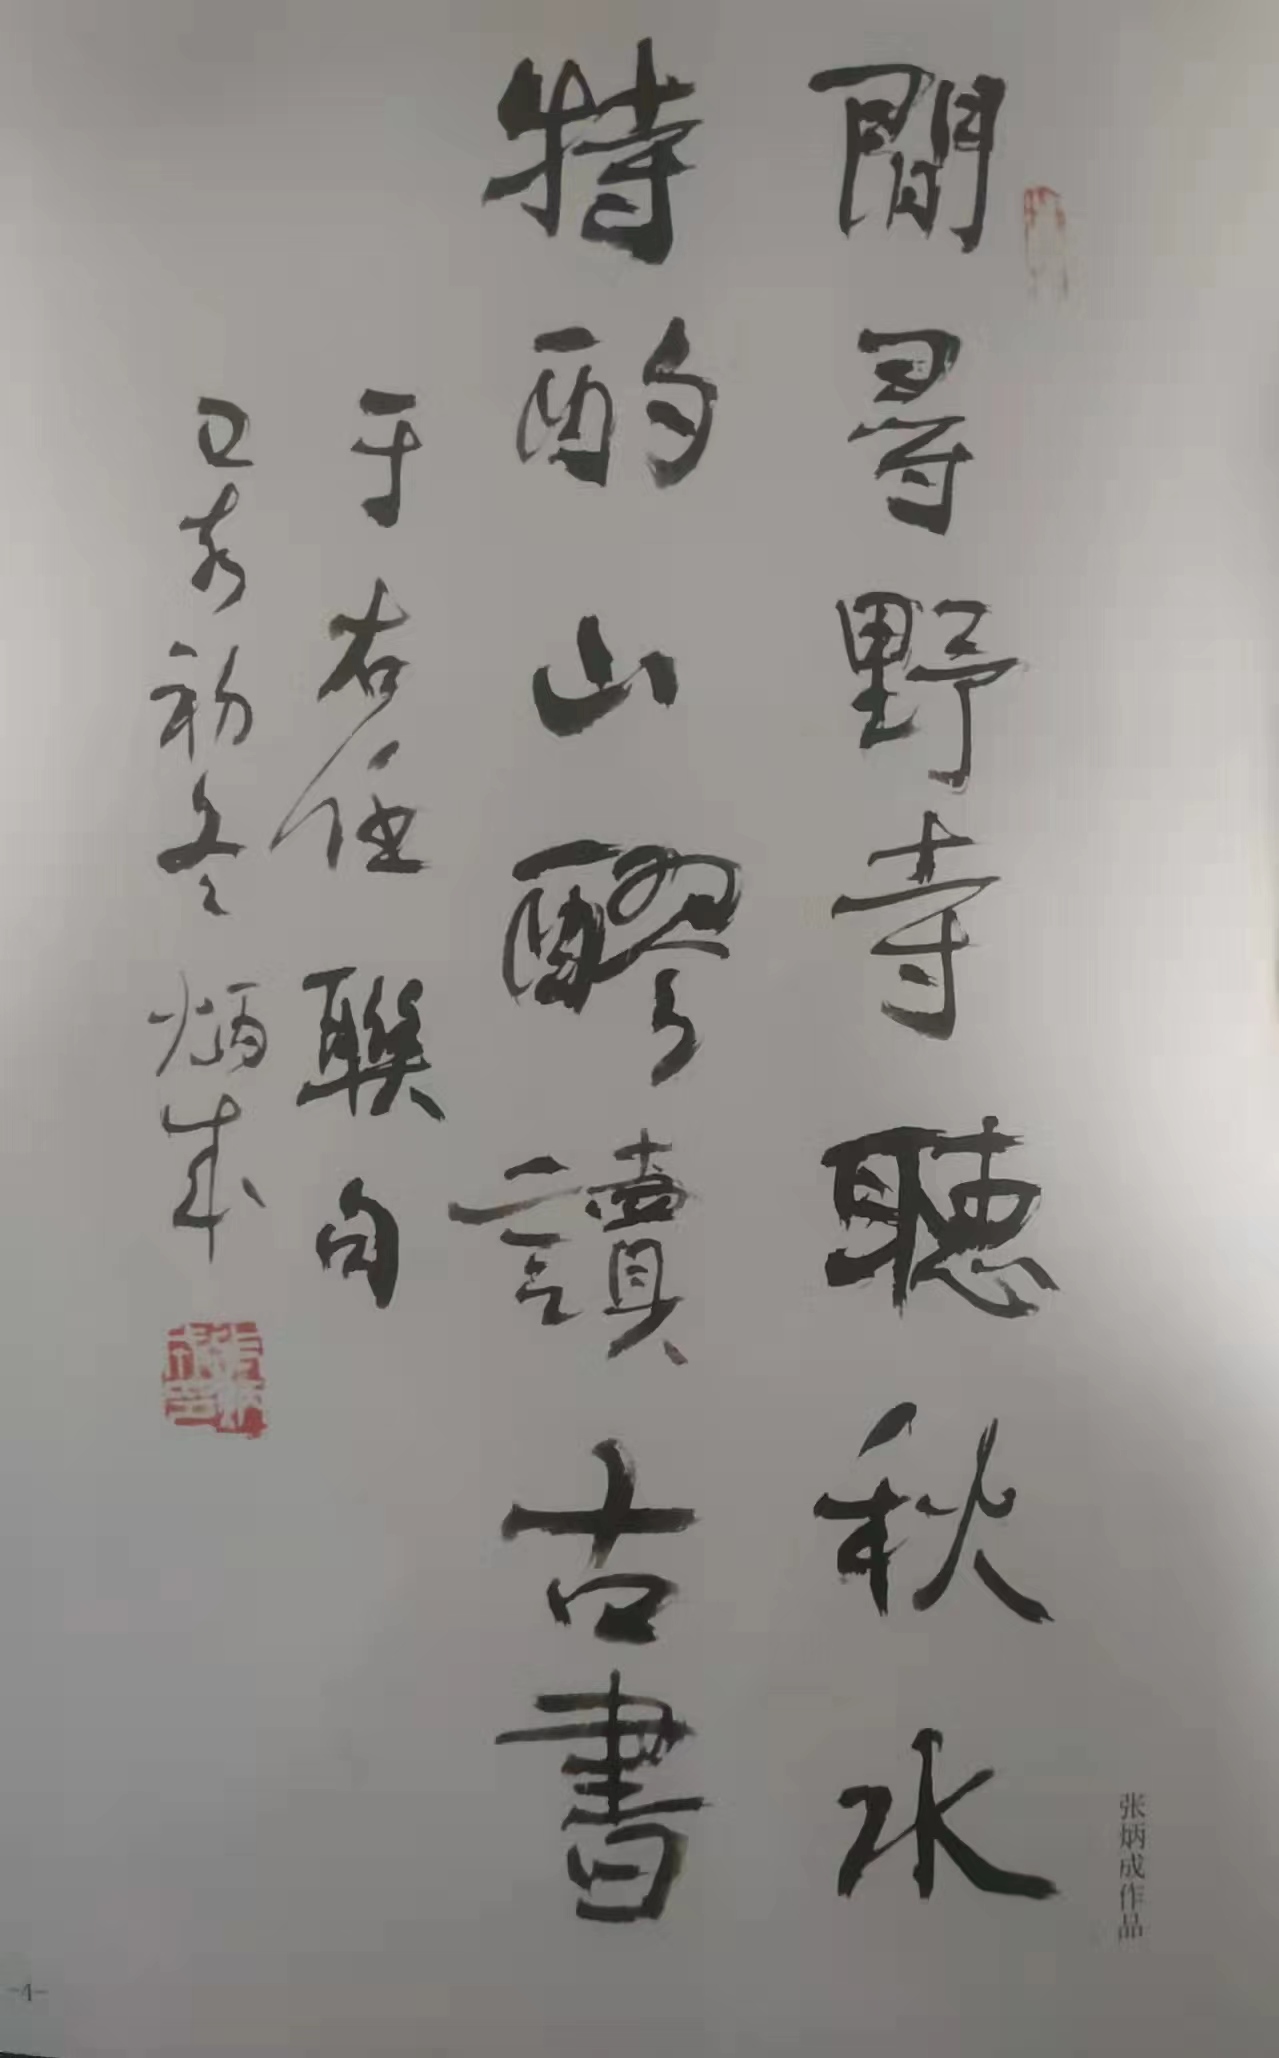 間尋野寺聽秋水
特酌山醪讀古書
于右任聯句
己亥初冬炳成
张炳成作品
-4-